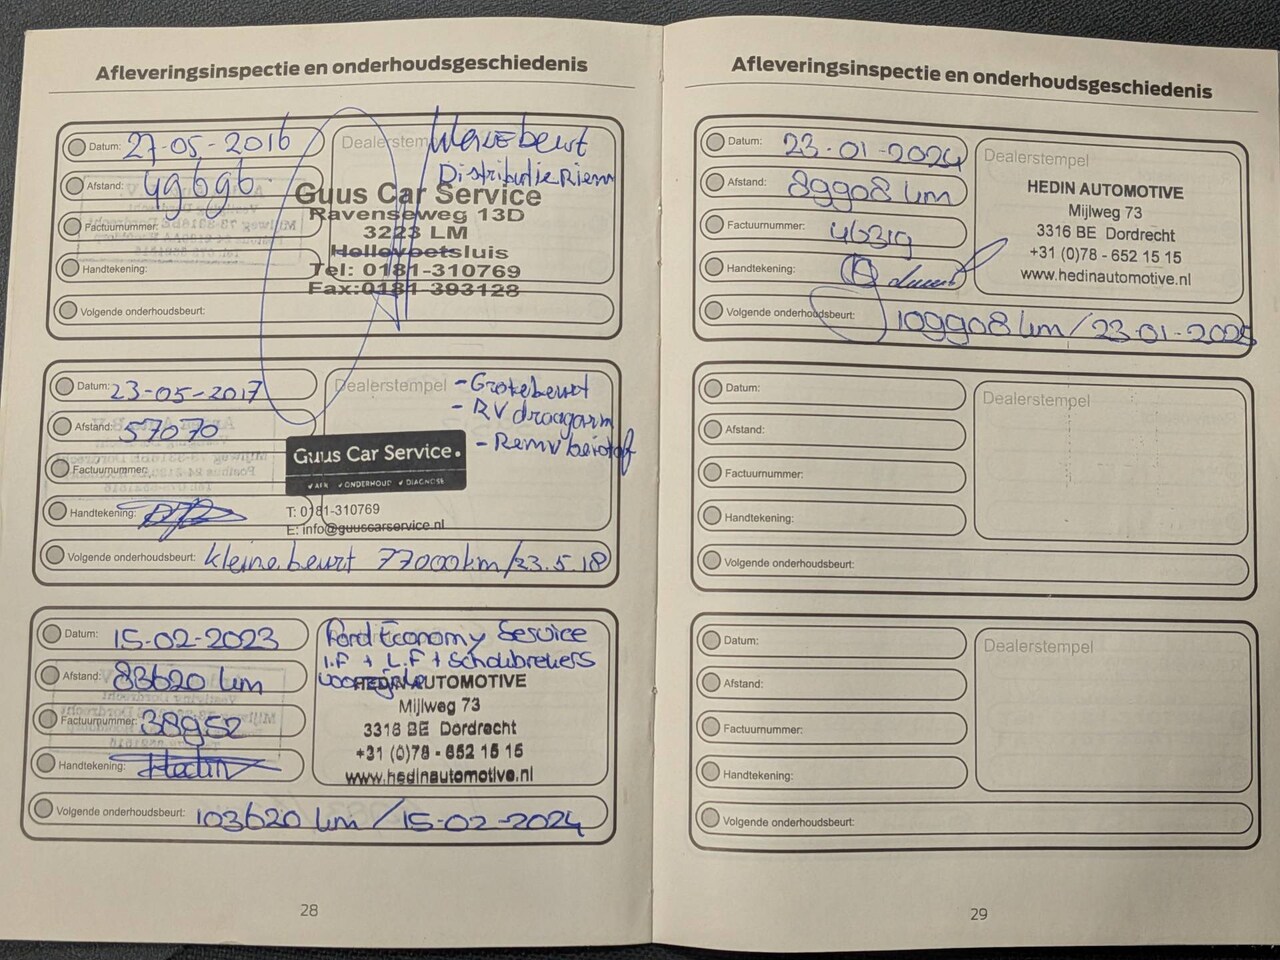 Afleveringsinspectie en onderhoudsgeschiedenis
Datum: 27-05-2016
Afstand: 49696
Factuurnummer:
Handtekening:
Volgende onderhoudsbeurt:
Dealerstempel
beurt
Distributie Riem
Guus Car Service
Ravenseweg 13D
3223 LM
Hellevoetsluis
Tel: 0181-310769
Fax:0181-393128
Datum: 23-05-2017
Afstand: 57070
Factuurnummer:
Handtekening:
Volgende onderhoudsbeurt: kleine beurt 77000km/23.5.18
Dealerstempel
- Grote beurt
- RV draagarm
- Remv beistof
Guus Car Service.
✓ APK ✓ ONDERHOUD ✓ DIAGNOSE
T: 0181-310769
E: info@guuscarservice.nl
Datum: 15-02-2023
Afstand: 83620 km
Factuurnummer: 38952
Handtekening: Hedin
Volgende onderhoudsbeurt: 103620 km / 15-02-2024
Ford Economy Service
I.F + L.F + Schoubrekers
voorzijde
HEDIN AUTOMOTIVE
Mijlweg 73
3316 BE Dordrecht
+31 (0)78 - 652 15 15
www.hedinautomotive.nl
28
Afleveringsinspectie en onderhoudsgeschiedenis
Datum: 23-01-2024
Afstand: 89908 km
Factuurnummer: 46319
Handtekening:
Volgende onderhoudsbeurt: 109908 km / 23-01-2025
Dealerstempel
HEDIN AUTOMOTIVE
Mijlweg 73
3316 BE Dordrecht
+31 (0)78 - 652 15 15
www.hedinautomotive.nl
Datum:
Afstand:
Factuurnummer:
Handtekening:
Volgende onderhoudsbeurt:
Dealerstempel
Datum:
Afstand:
Factuurnummer:
Handtekening:
Volgende onderhoudsbeurt:
Dealerstempel
29